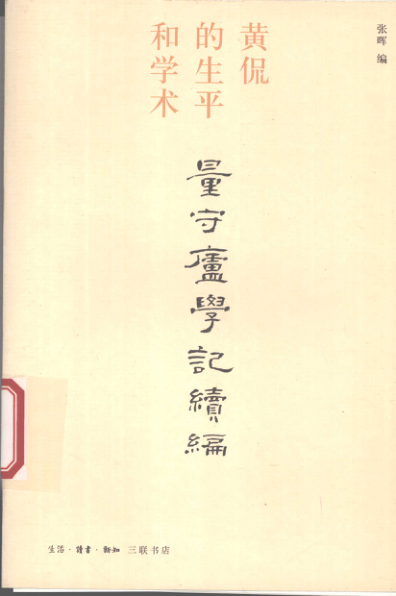 张晖 编
黄侃
的生平
和学术
量守廬學記續編
生活·讀書·新知 三联书店